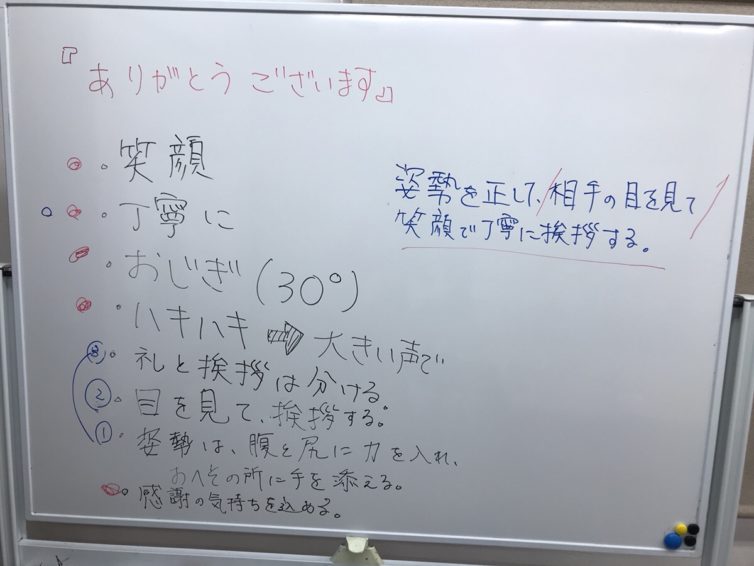 『ありがとうございます』
・笑顔
・丁寧に
・おじぎ(30°)
・ハキハキ ⇨ 大きい声で
③・礼と挨拶は分ける
②・目を見て、挨拶する。
①・姿勢は、腹と尻に力を入れ、
おへその所に手を添える。
・感謝の気持ちを込める。
姿勢を正して、相手の目を見て
笑顔で丁寧に挨拶する。